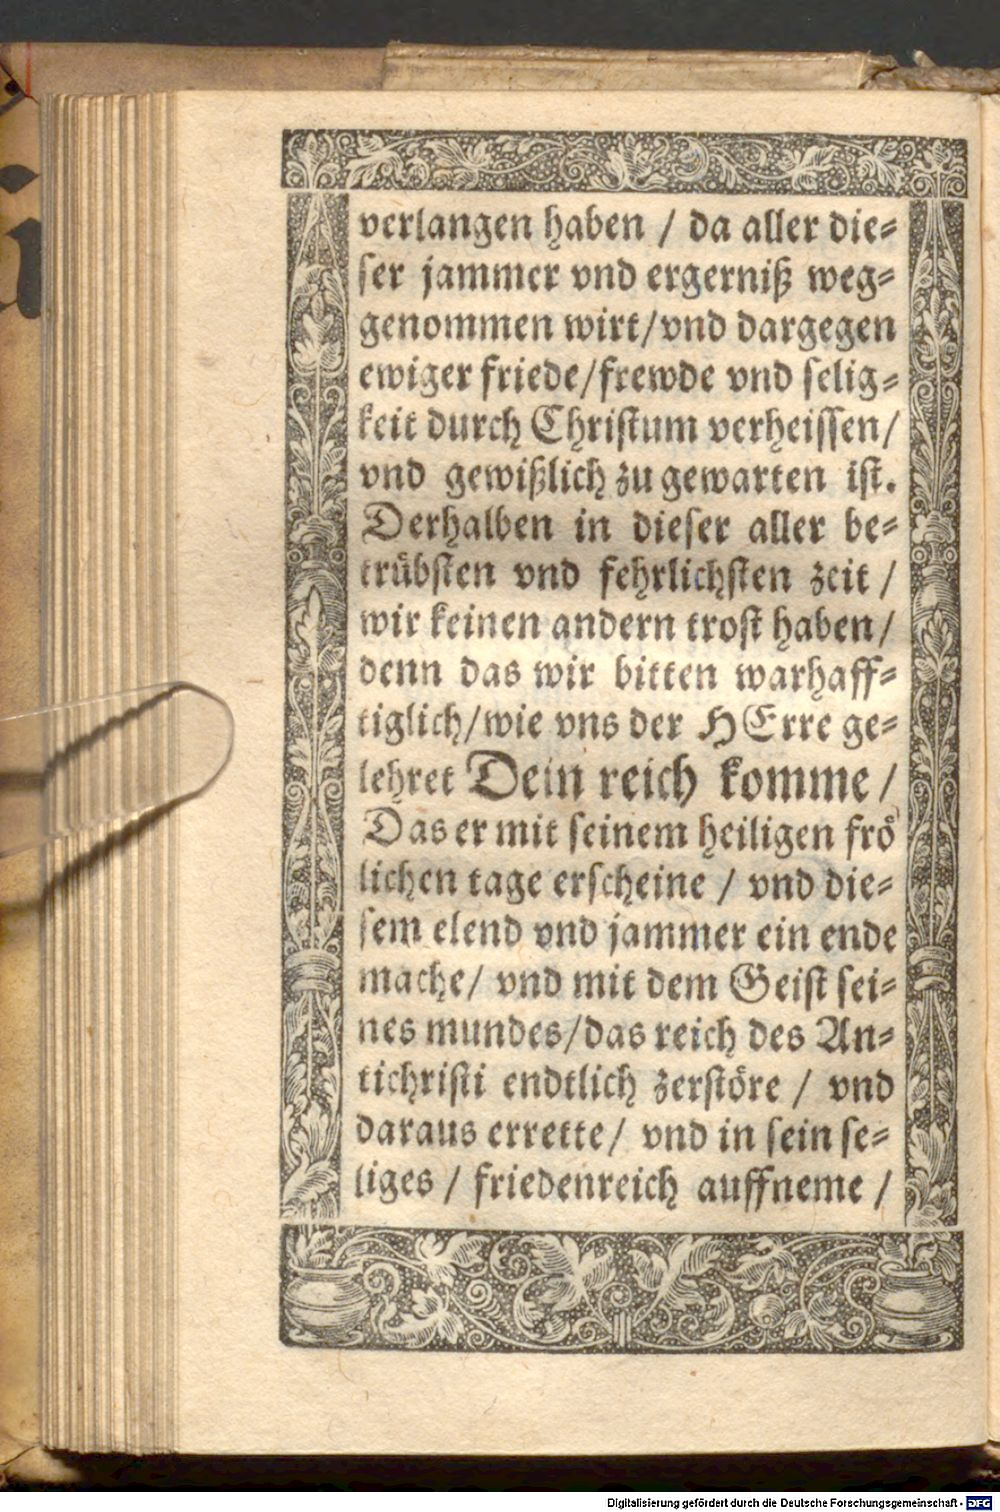 verlangen haben / da aller die⸗
ser jammer vnd ergerniß weg⸗
genommen wirt/vnd dargegen
ewiger friede/frewde vnd selig⸗
keit durch Christum verheissen/
vnd gewißlich zu gewarten ist.
Derhalben in dieser aller be⸗
trübsten vnd fehrlichsten zeit /
wir keinen andern trost haben/
denn das wir bitten warhaff⸗
tiglich/wie vns der HErre ge⸗
lehret Dein reich komme /
Das er mit seinem heiligen frö
lichen tage erscheine / vnd die⸗
sem elend vnd jammer ein ende
mache/ vnd mit dem Geist sei⸗
nes mundes/das reich des An⸗
tichristi endtlich zerstöre / vnd
daraus errette/ vnd in sein se⸗
liges / friedenreich auffneme /
Digitalisierung gefördert durch die Deutsche Forschungsgemeinschaft - DFG